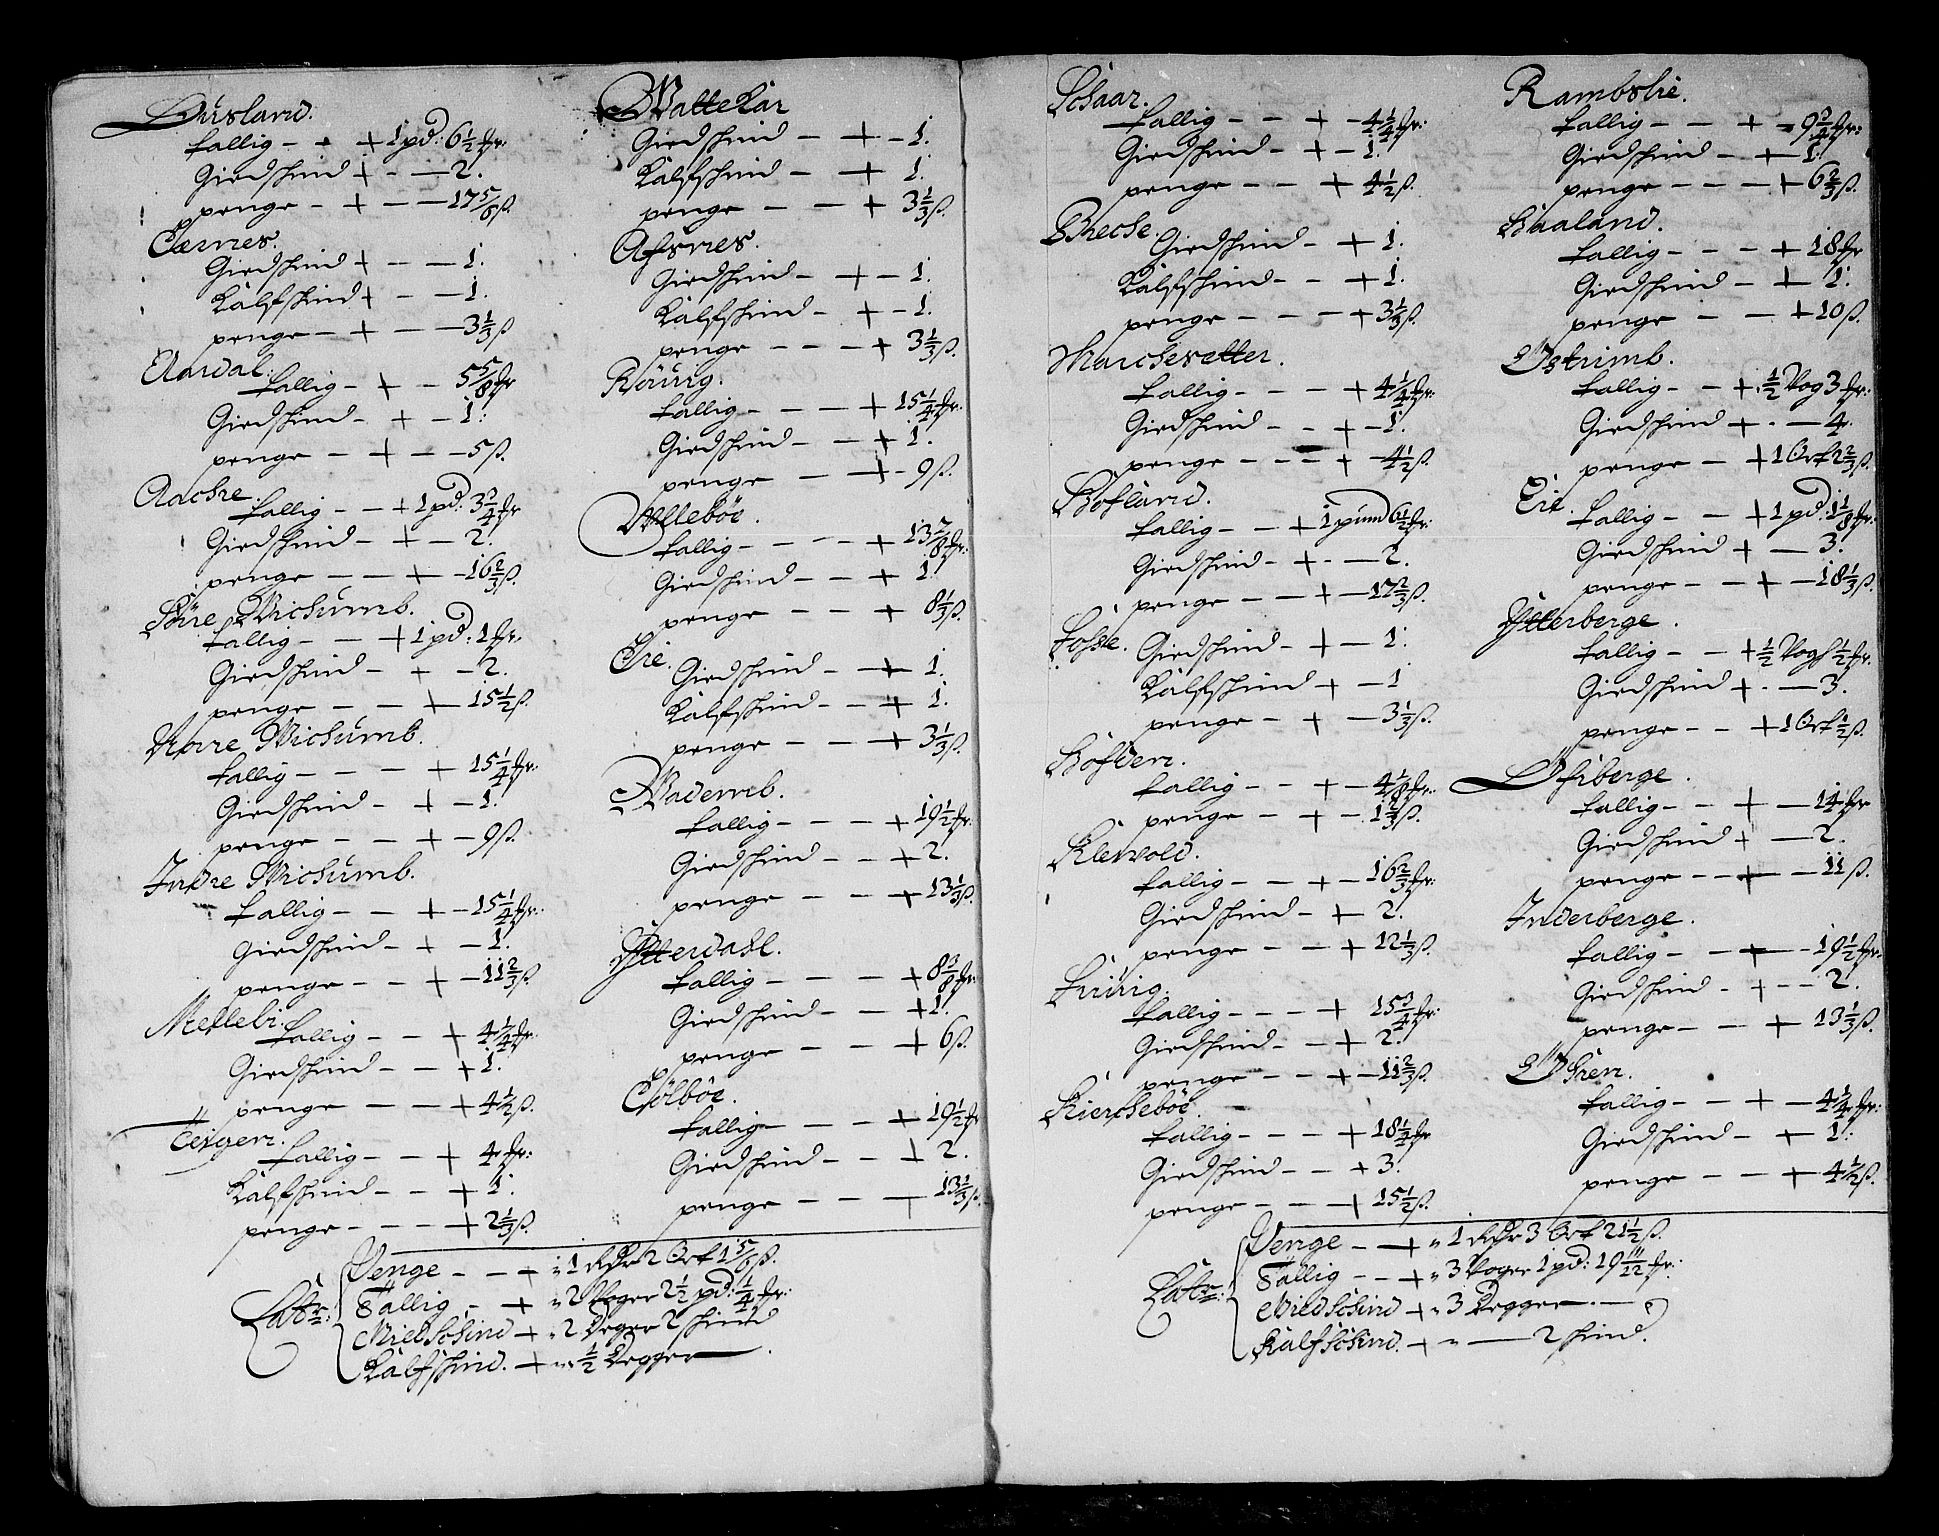 Husland.
tallig - + + 1 pd: 6 1/2 #r:
Giedskind + - - 2.
penge - + - - 17 5/6 ß.
Tærnes.
Giedskind + - - 1.
Kalfskind + - - 1.
penge - + - - 3 1/3 ß
Aardal.
tallig - + - 5 5/8 #r
Giedskind - + - 1.
penge - + - - 5 ß.
Aache.
tallig - - + 1 pd: 3 3/4 #r
Giedskind - + - 2.
penge - - + - 16 2/3 ß.
Söre Wichumb.
tallig - - + 1 pd: 1 #r.
Giedskind - + - 2.
penge - - + - 15 1/2 ß.
Norre Wichumb.
tallig - - - + 15 1/4 #r:
Giedskind - + - 1.
penge - - + - 9 ß.
Indre Wichumb.
tallig - - + - 15 1/4 #r:
Giedskind - + - 1.
penge - - + - 11 2/3 ß.
Mellebi.
tallig - - + 4 1/4 #r:
Giedskind - - + 1.
penge - - - + 4 1/2 ß.
tallig - - + 4 #r:
Kalfskind - - + 1.
penge - - - + 2 1/3 ß.
Wattekar
Giedskind - + - 1.
Kalfskind - + 1.
penge - - + 3 1/3 ß.
Afsnes.
Giedskind - + - 1.
Kalfskind - + - 1.
penge - - - + 3 1/3 ß.
Röurg.
tallig - - - + 15 1/4 #r:
Giedskind - - + 1.
penge - - + - 9 ß.
Wlleböe.
tallig - - - + 13 7/8 #r:
Giedskind - - + 1.
penge - - - + 8 1/3 ß.
Eie.
Giedskind - + 1.
Kalfskind - - + 1.
penge - - - + 3 1/3 ß.
Wademb.
tallig - - - + 19 1/2 #r.
Giedskind - - + 2.
penge - - - + 13 1/3 ß.
Ytterdahl.
tallig - - - + 8 3/8 #r:
Giedskind - - + 1.
penge - - - + 6 ß.
Tölböe.
tallig - - - + 19 1/2 #r
Giedskind - - + 2.
penge - - - + 13 1/3 ß.
Penge - - + " 1 Rdr 2 Ort 1 5/6 ß.
Tallig - + " 2 Woger 2 1/2 pd: 1/4 #r:
Latr:
Giedschind + " 2 Deger 2 skind
Kalfskind. + " " 1/2 Degger
Schaar.
tallig - - + - 4 1/4 #r:
Giedskind - + - 1.
penge - - + 4 1/2 ß.
Breche.
Giedskind - + 1.
Kalfskind - - + 1.
penge - - - + 3 1/3 ß.
Marchesetter.
tallig - - - + 4 1/4 #r:
Giedskind - - + - 1.
penge - - - + - 4 1/2 ß.
Hofland.
tallig - - + 1 pund 6 1/2 #r:
Giedskind - + - - 2.
penge - - + - 17 2/3 ß.
Fosse.
Giedskind - + - 1.
Kalfskind + - 1
penge - + - 3 1/3 ß.
Hofden.
tallig - - - + - 4 1/8 #r:
penge - - + - 1 2/3 ß.
Klewold.
tallig - - + - 16 2/3 #r:
Giedskind - + 2.
penge - - + 12 1/3 ß.
tallig - - - + 15 3/4 #r:
Giedskind - - + 2.
penge - - + - 11 2/3 ß.
Kiercheböe.
tallig - - - + 18 1/4 #r
Giedskind - - + 3.
penge - - - + 15 1/2 ß.
Rambslie.
tallig - - + - 9 3/4 #r:
Giedskind - + 1.
penge - - - + 6 2/3 ß.
Haaland.
tallig - - - + 18 #r
Giedskind - + 1.
penge - - + 10 ß.
Östrimb.
tallig - - + 1/2 Wog 3 #r:
Giedskind + - - 4.
penge - + 1 Ort 2 2/3 ß.
Eie.
tallig - - + 1 pd: 1 1/8 #r:
Giedskind + - 3.
penge - - + - 18 1/3 ß.
Ytterberge.
tallig - - + 1/2 Wog 1/2 #r.
Giedskind + - - 3.
penge - - + 1 Ort 1/2 ß.
Öfiberge.
tallig - - + - 14 #r
Giedskind + - 2.
penge - - + - 11 ß.
Inderberge.
tallig - - + - 19 1/2 #r:
Giedskind - + - - 2.
penge - - + 13 1/3 ß.
Öhren.
tallig - - + - 4 1/4 #r:
Giedskind - + 1.
penge - - + 4 1/2 ß.
Penge - + " 1 Rdr 3 Ort 21 1/2 ß.
Tallig - - + " 3 Woger 1 pd: 19 11/12 #r:
Latr:
Giedschind + " 3 Degger.
Kalfschind. + " - 2 skind.